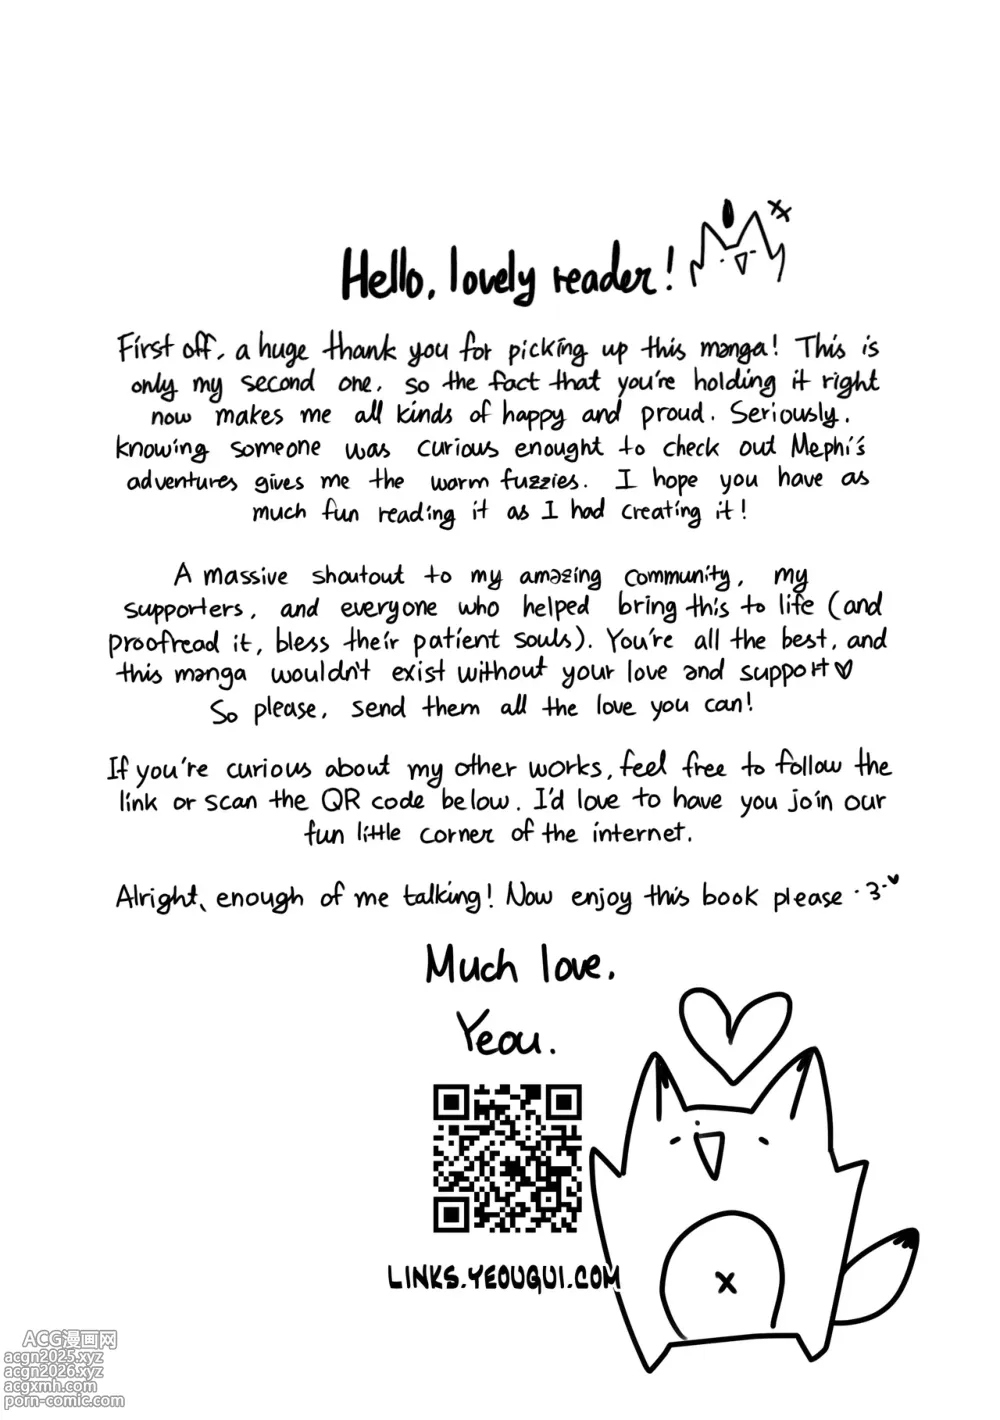 Hello, lovely reader!
First off, a huge thank you for picking up this manga! This is
only my second one, so the fact that you're holding it right
now makes me all kinds of happy and proud. Seriously,
knowing someone was curious enought to check out Mephi's
adventures gives me the warm fuzzies. I hope you have as
much fun reading it as I had creating it!
A massive shoutout to my amazing community, my
supporters, and everyone who helped bring this to life (and
proofread it, bless their patient souls). You're all the best, and
this manga wouldn't exist without your love and support♡
So please, send them all the love you can!
If you're curious about my other works, feel free to follow the
link or scan the QR code below. I'd love to have you join our
fun little corner of the internet.
Alright, enough of me talking! Now enjoy this book please ·3·♥
Much love,
Yeou.
LINKS.YEOUGUI.COM
ACG漫画网
acgn2025.xyz
acgn2026.xyz
acgxmh.com
porn-comic.com